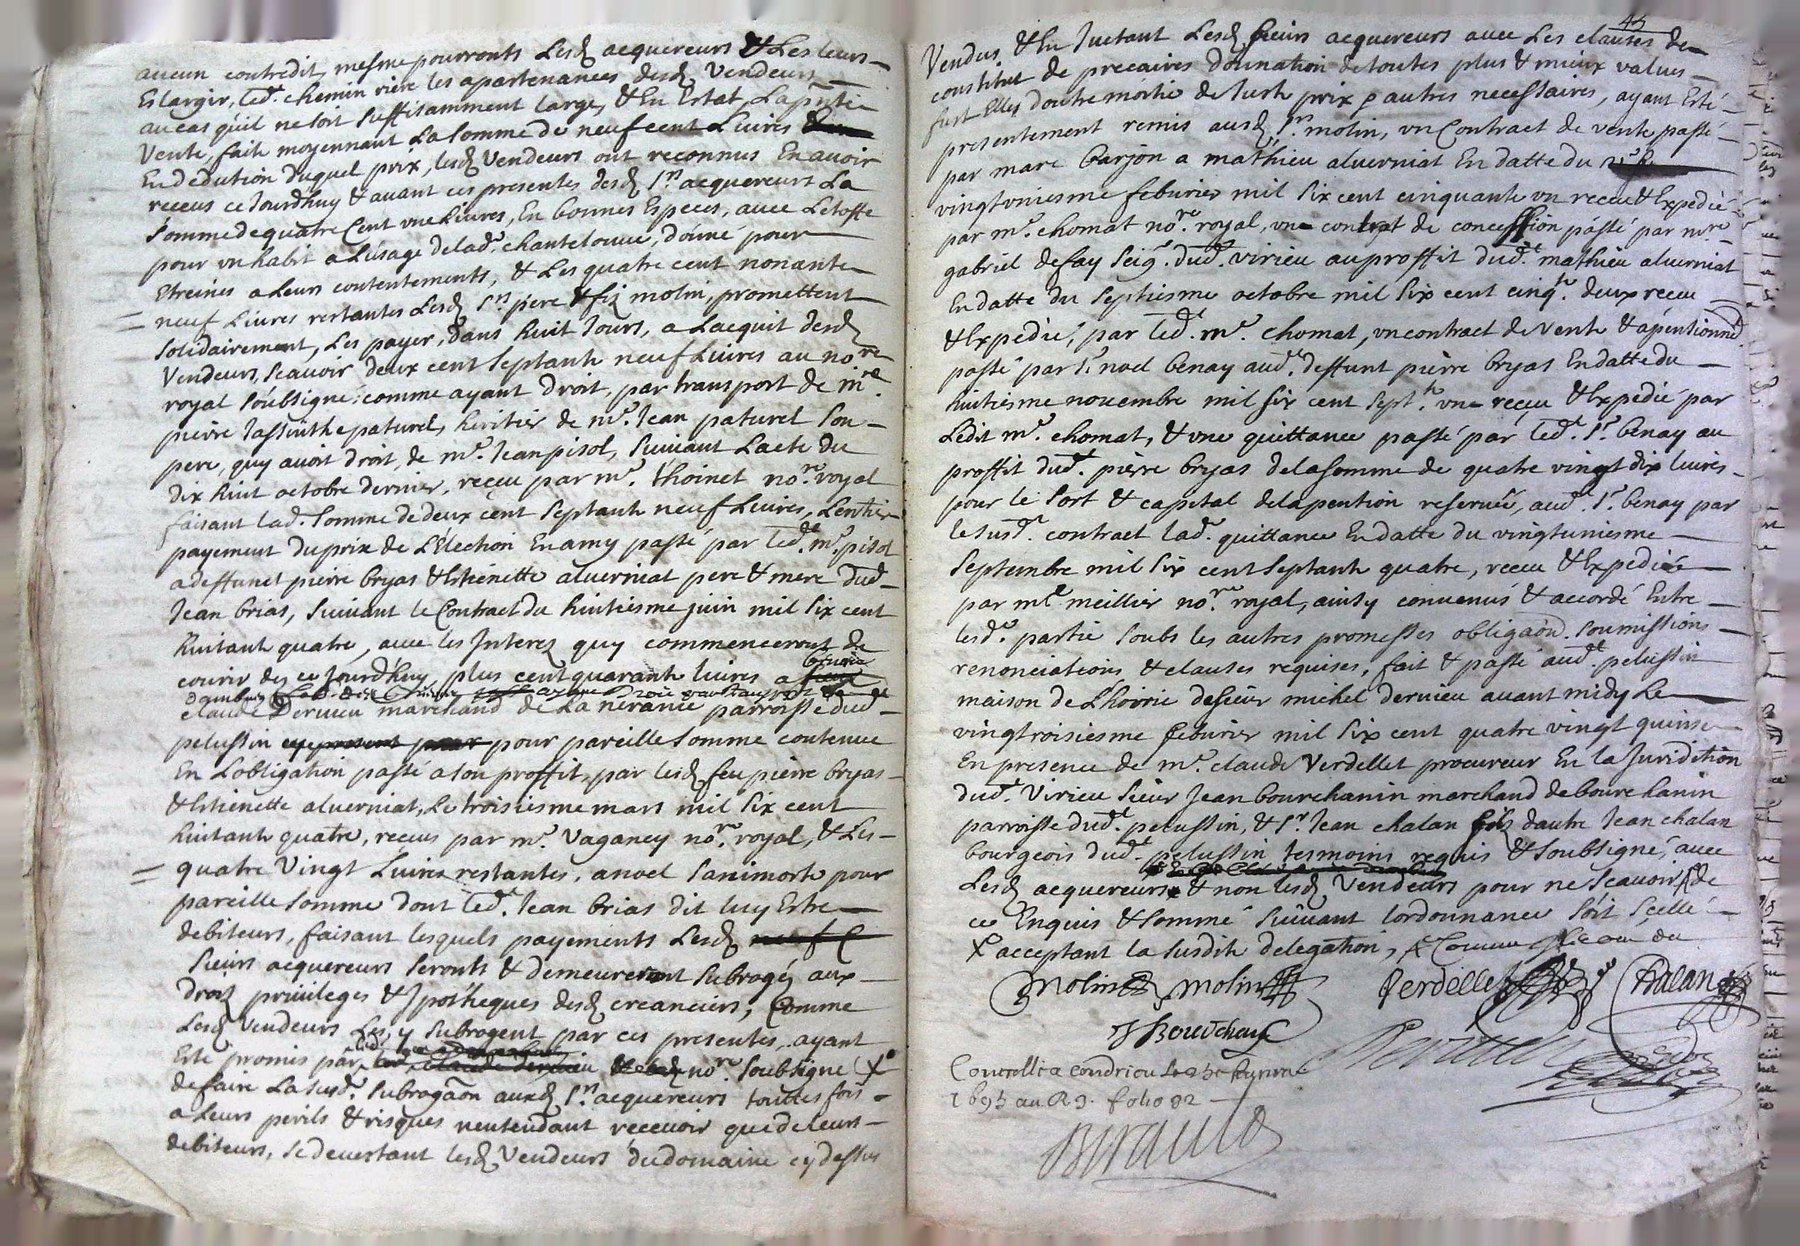 aucun contredit, mesme pourronts Lesd acquereurs & Les leurs
Eslargir, led. chemin riere les apartenances desd Vendeurs
au cas quil ne soit suffisamment large, & En Estat, La pnte
Vente, fait moyennant La somme de neuf cent Livres
En dedution duquel prix, lesd Vendeurs ont reconnus En auoir
receus ce Jourdhuy & auant ces presentes desd Srs acquereurs La
somme de quatre Cent vne Liures, En bonnes Especes, auec Letoffe
pour vn habit a L'usage de lad. chantelouue, donné pour
Etreines a Leurs contentements, & Les quatre cent nonante
neuf Liures restantes Lesd Srs pere & fiz molin, promettent
solidairement, Les payer, dans huit Jours, a Lacquit desd
Vendeurs, scauoir deux cent septante neuf Liures au nore
royal soubsigné, comme ayant Droit, par transport de mre
pierre Jassinthe paturel, heritier de mr. Jean paturel son
pere, quy auoit droit, de mr. Jean pisol, suiuant Lacte du
dix huit octobre dernier, receu par mr. thoinet nore. royal
faisant lad. somme de deux cent septante neuf Liures, Lentier
payement du prix de L'Election En amy passé par led. mr. pisol
a deffunct pierre bryas & Estienette aluerniat pere & mere dud
Jean brias, suiuant le Contract du huitiesme juin mil six cent
huitante quatre, auec les Interez quy commenceront de
courir des ce Jourdhuy, plus cent quarante liures a
claude Deruieu marchand de La neranie parroisse dud
pelussin pour pareille somme contenue
En Lobligation passé a son proffit, par lesd feu pierre bryas
& Estienette aluerniat, Le troisiesme mars mil six cent
huitante quatre, receus par mr. Vaganey nore. royal, & Les
quatre Vingt Liures restantes, a noel Sanimorte pour
pareille somme dont led. Jean brias dit luy Estre
debiteurs, faisant lesquels payements Lesd
sieurs acquereurs seronts & demeureront subrogéz aux
droiz priuileges & Ipotheques desd creanciers, Comme
Lesd Vendeurs Les, y subrogent par ces presentes, ayant
Esté promis par nore. soubsigne X
de faire La susd. subrogaon ausd Srs acquereurs touttes fois
a Leurs perils & risques nentendant receuoir que de leurs
debiteurs, se deuestant lesd Vendeurs du domaine cy dessus
45
Vendus, & En Jnuetant Lesd sieurs acquereurs auec Les clauses de
constitut de precaires donnation de toutes plus & mieux values
fust Elles doutre moitié de Juste prix & autres necessaires, ayant Esté
presentement remis ausd Srs molin, vn Contract de vente passé
par marc barjon a mathieu aluerniat En datte du
vingtuniesme feburier mil six cent cinquante vn receu & Expedié
par mr. chomat nore. royal, vn contrat de concession passé par mre
gabriel de fay seigr. dud. virieu au proffit dud. mathieu aluerniat
En datte du septiesme octobre mil six cent cinqte. deux receu
& Expedié, par led. mr. chomat, vn contract de vente & apentionné
passé par Sr noel benay aud. deffunt pierre bryas En datte du
huitiesme nouembre mil six cent septte. vn receu & Expedié par
Ledit mr. chomat, & vne quittance passé par led. Sr. benay au
proffit dud. pierre bryas de la somme de quatre vingt dix liures
pour le sort & capital de la pention reseruée, aud. Sr. benay par
le susd. contract lad. quittance En datte du vingtuniesme
septembre mil six cent septante quatre, receu & Expediée
par mre meillier nore. royal, ainsy conuenus & accordé Entre
lesd. partie soubs les autres promesses obligaon. soumissions
renonciations & clauses requises, fait & passé aud. pelussin
maison de L'hoirie de sieur michel deruieu auant midy Le
vingtroisiesme feburier mil six cent quatre vingt quinse
En presence de mr. claude Verdellet procureur En la Juridition
dud. Virieu sieur Jean bourchanin marchand de bourchanin
parroisse dud. pelussin, & Sr. Jean chalan fils dautre Jean chalan
bourgeois dud. pelussin tesmoins requis & soubsigné, auec
Lesd acquereurs & non lesd Vendeurs pour ne scauoir, de
ce Enquis & sommé suiuant lordonnance soit scellé
X acceptant la susdite delegation,
Molin Molin Verdellet Chalan
J Bourchanin
Controllé a condrieu le
1695 au R 9. folio 92